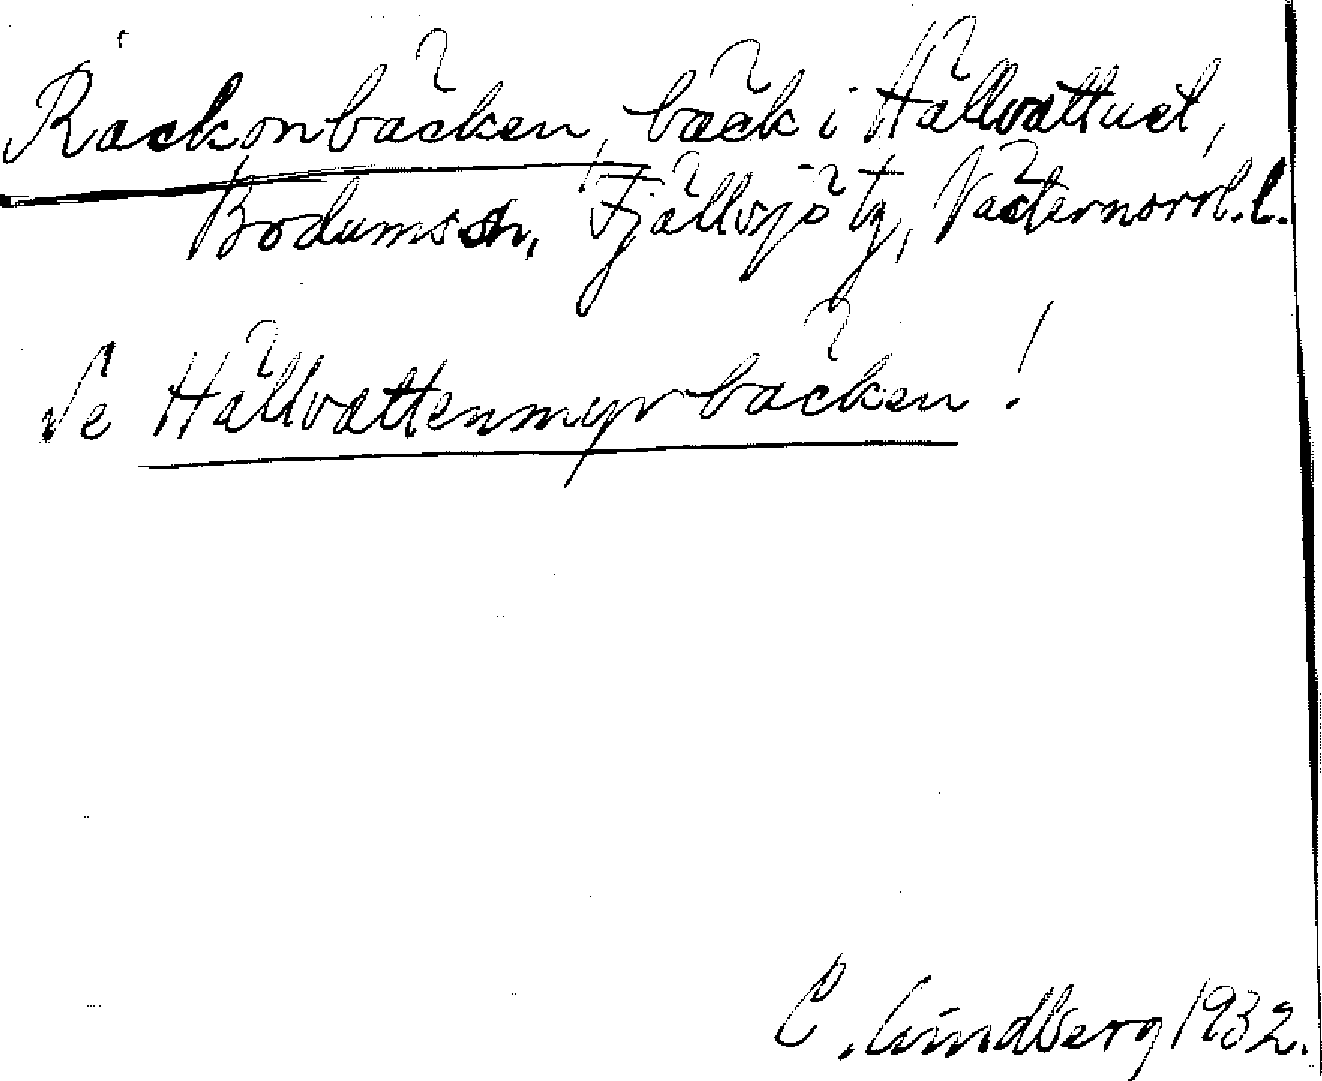 Rackonbäcken, bäck i Hällvattnet,
Bodums sn, Fjällsjö tg, Västernorrl. l.
Se Hällvattenmyrbäcken!
C. Lindberg 1932.